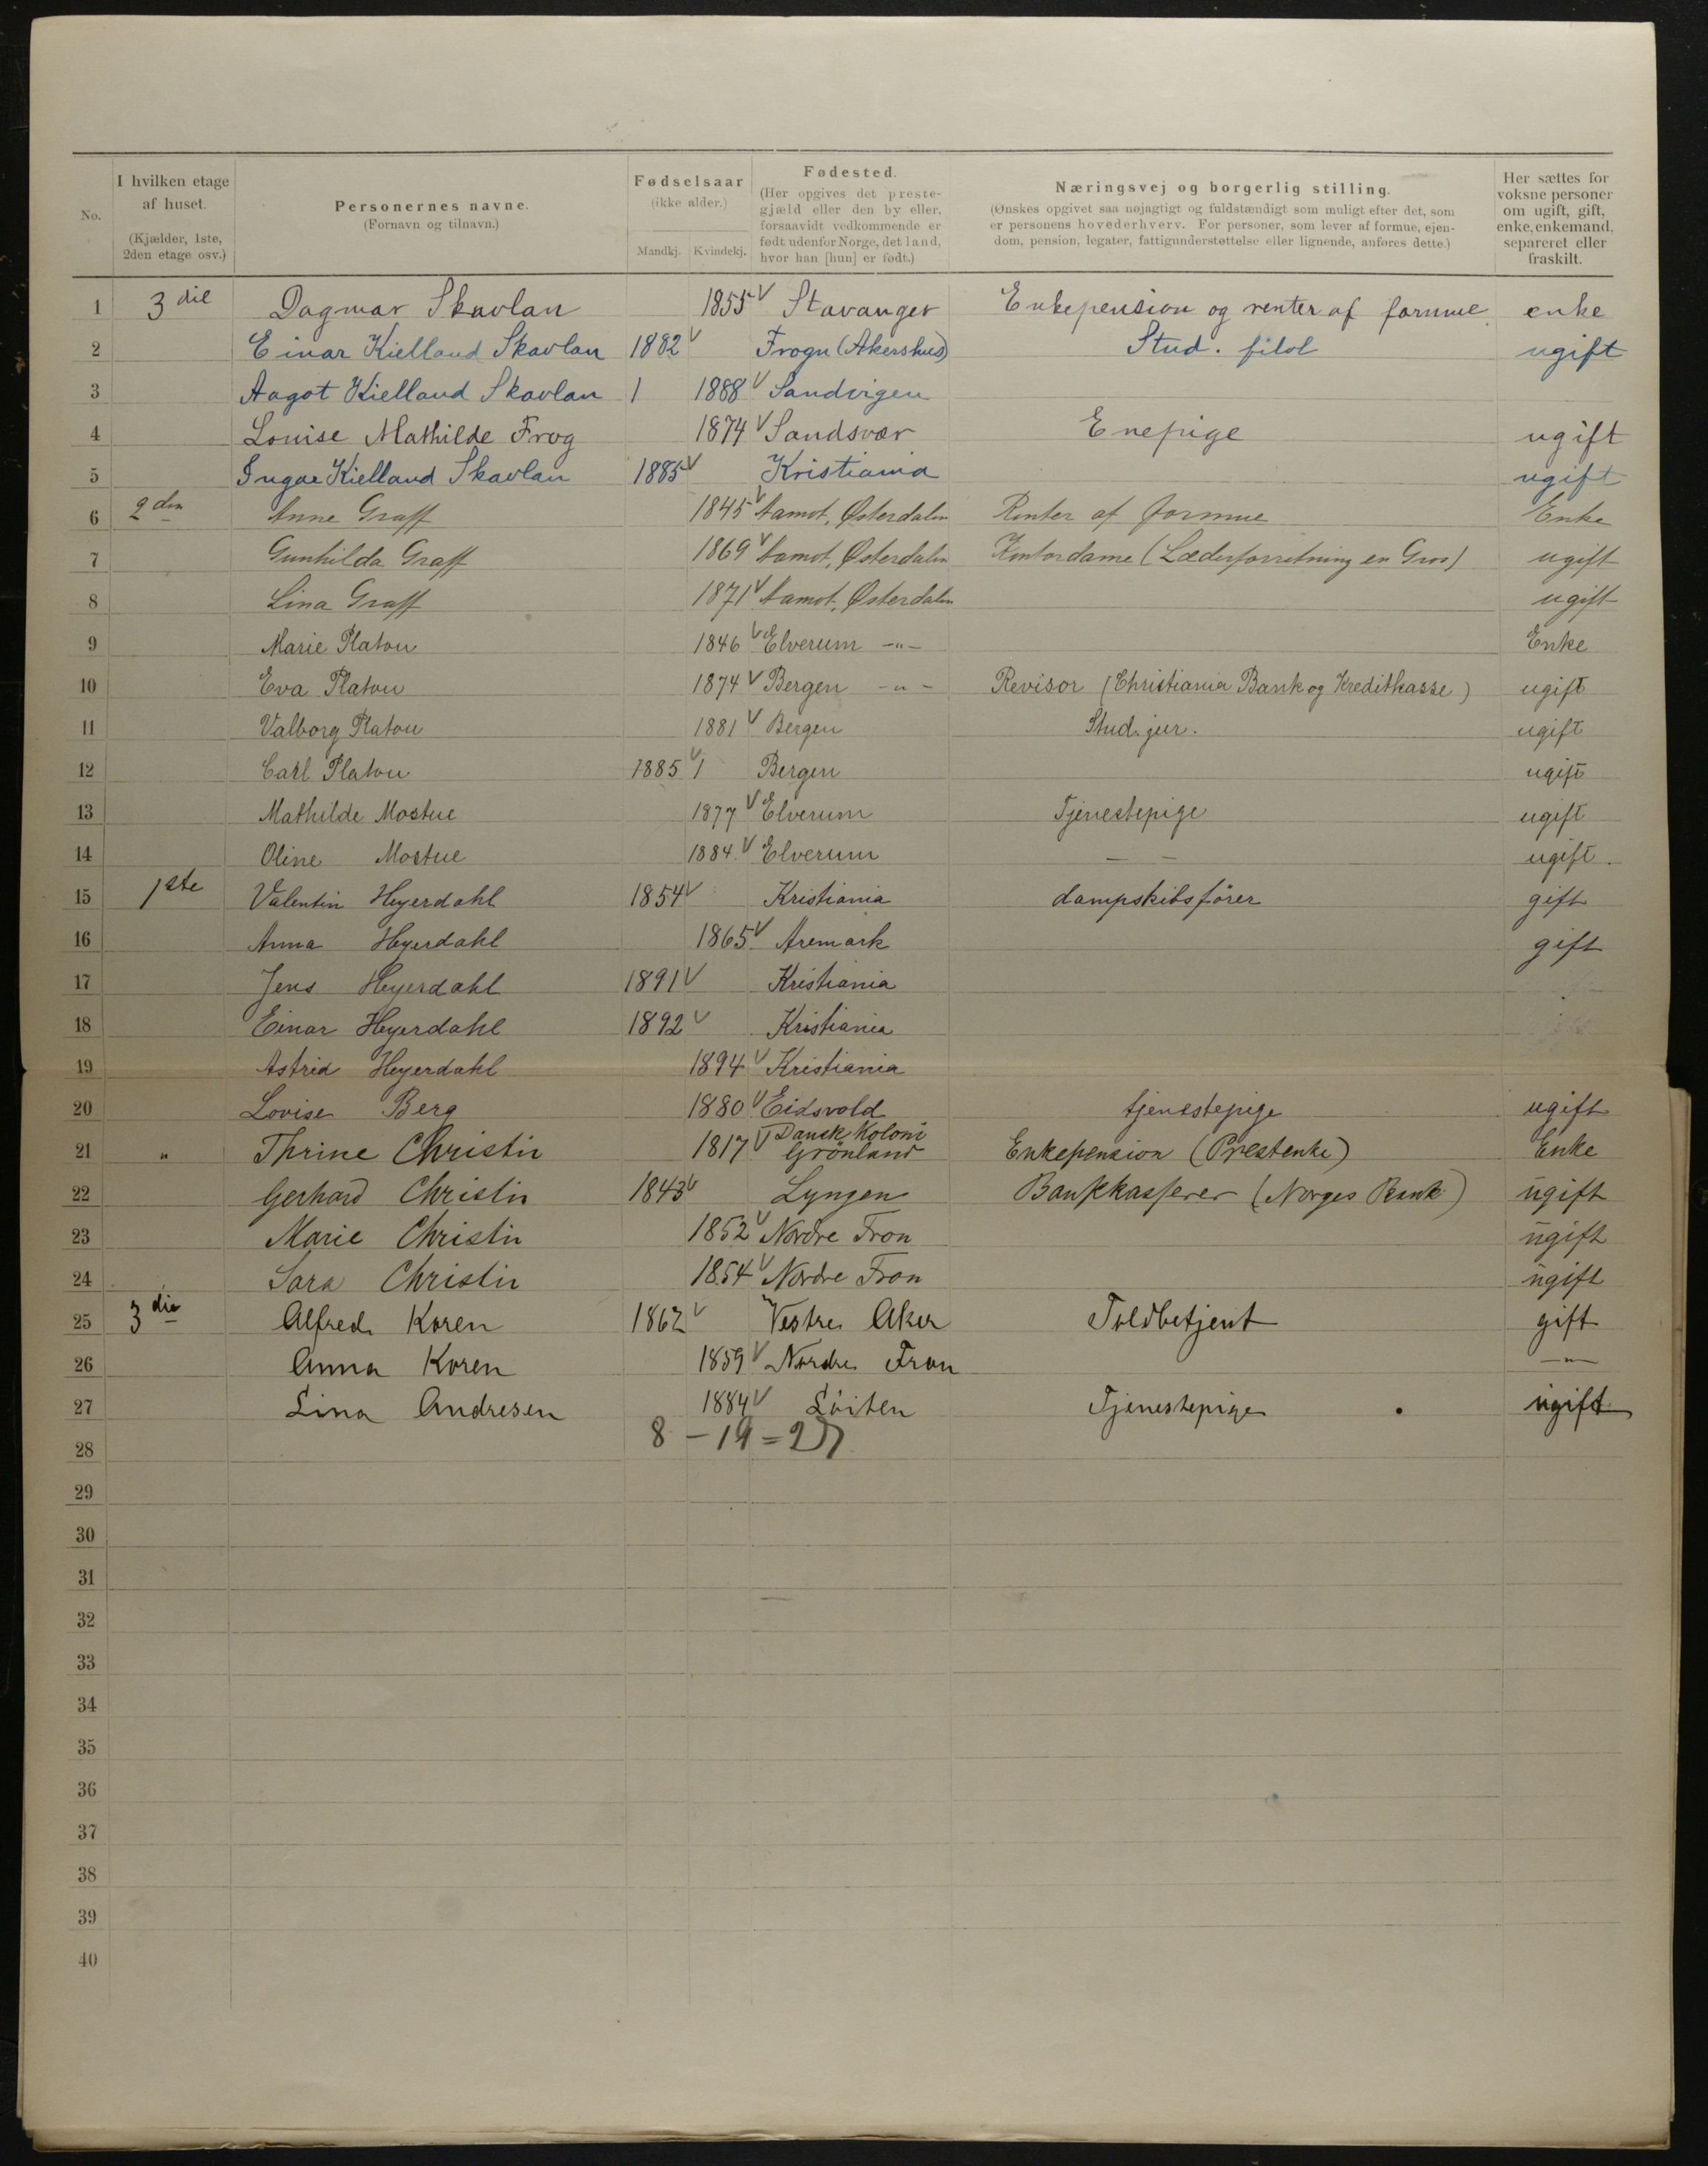 No.
I hvilken etage af huset.
(Kjælder, 1ste, 2den etage osv.)
Personernes navne.
(Fornavn og tilnavn.)
Fødselsaar
(ikke alder.)
Mandkj. Kvindekj.
Fødested.
(Her opgives det prestegjæld eller den by eller, forsaavidt vedkommende er født udenfor Norge, det land, hvor han [hun] er født.)
Næringsvej og borgerlig stilling.
(Ønskes opgivet saa nøjagtigt og fuldstændigt som muligt efter det, som er personens hovederhverv. For personer, som lever af formue, ejendom, pension, legater, fattigunderstøttelse eller lignende, anføres dette.)
Her sættes for voksne personer om ugift, gift, enke, enkemand, separeret eller fraskilt.
1 3die Dagmar Skavlan 1855 Stavanger Enkepension og renter af formue enke
2 Einar Kielland Skavlan 1882 Frogn (Akershus) Stud. filol ugift
3 Aagot Kielland Skavlan 1 1888 Sandvigen
4 Louise Mathilde Frog 1874 Sandsvær Enepige ugift
5 Kielland Skavlan 1885 Kristiania ugift
6 2den Anne Graff 1845 Aamot, Østerdalen Renter af formue Enke
7 Gunhilda Graff 1869 Aamot, Østerdalen Kontordame (Læderforretning en Gros) ugift
8 Lina Graff 1871 Aamot, Østerdalen ugift
9 Marie Platou 1846 Elverum -"- Enke
10 Eva Platou 1874 Bergen -"- Revisor (Christiania Bank og Kreditkasse) ugift
11 Valborg Platou 1881 Bergen Stud. jur. ugift
12 Carl Platou 1885 1 Bergen ugift
13 Mathilde Mostue 1877 Elverum Tjenestepige ugift
14 Oline Mostue 1884 Elverum — — ugift.
15 1ste Valentin Heyerdahl 1854 Kristiania dampskibsfører gift
16 Anna Heyerdahl 1865 Aremark gift
17 Jens Heyerdahl 1891 Kristiania
18 Einar Heyerdahl 1892 Kristiania
19 Astrid Heyerdahl 1894 Kristiania
20 Lovise Berg 1880 Eidsvold tjenestepige ugift
21 " Thrine Christie 1817 Dansk Koloni Grönland Enkepension (Prestenke) Enke
22 Gerhard Christie 1843 Lyngen Bankkasserer (Norges Bank) ugift
23 Marie Christie 1852 Nordre Fron ugift
24 Sara Christie 1854 Nordre Fron ugift
25 3die Alfred Koren 1862 Vestre Aker Toldbetjent gift
26 Anna Koren 1859 Nordre Fron —"—
27 Lina Andresen 1884 Löiten Tjenestepige ugift
28 8 – 19 = 27
29
30
31
32
33
34
35
36
37
38
39
40